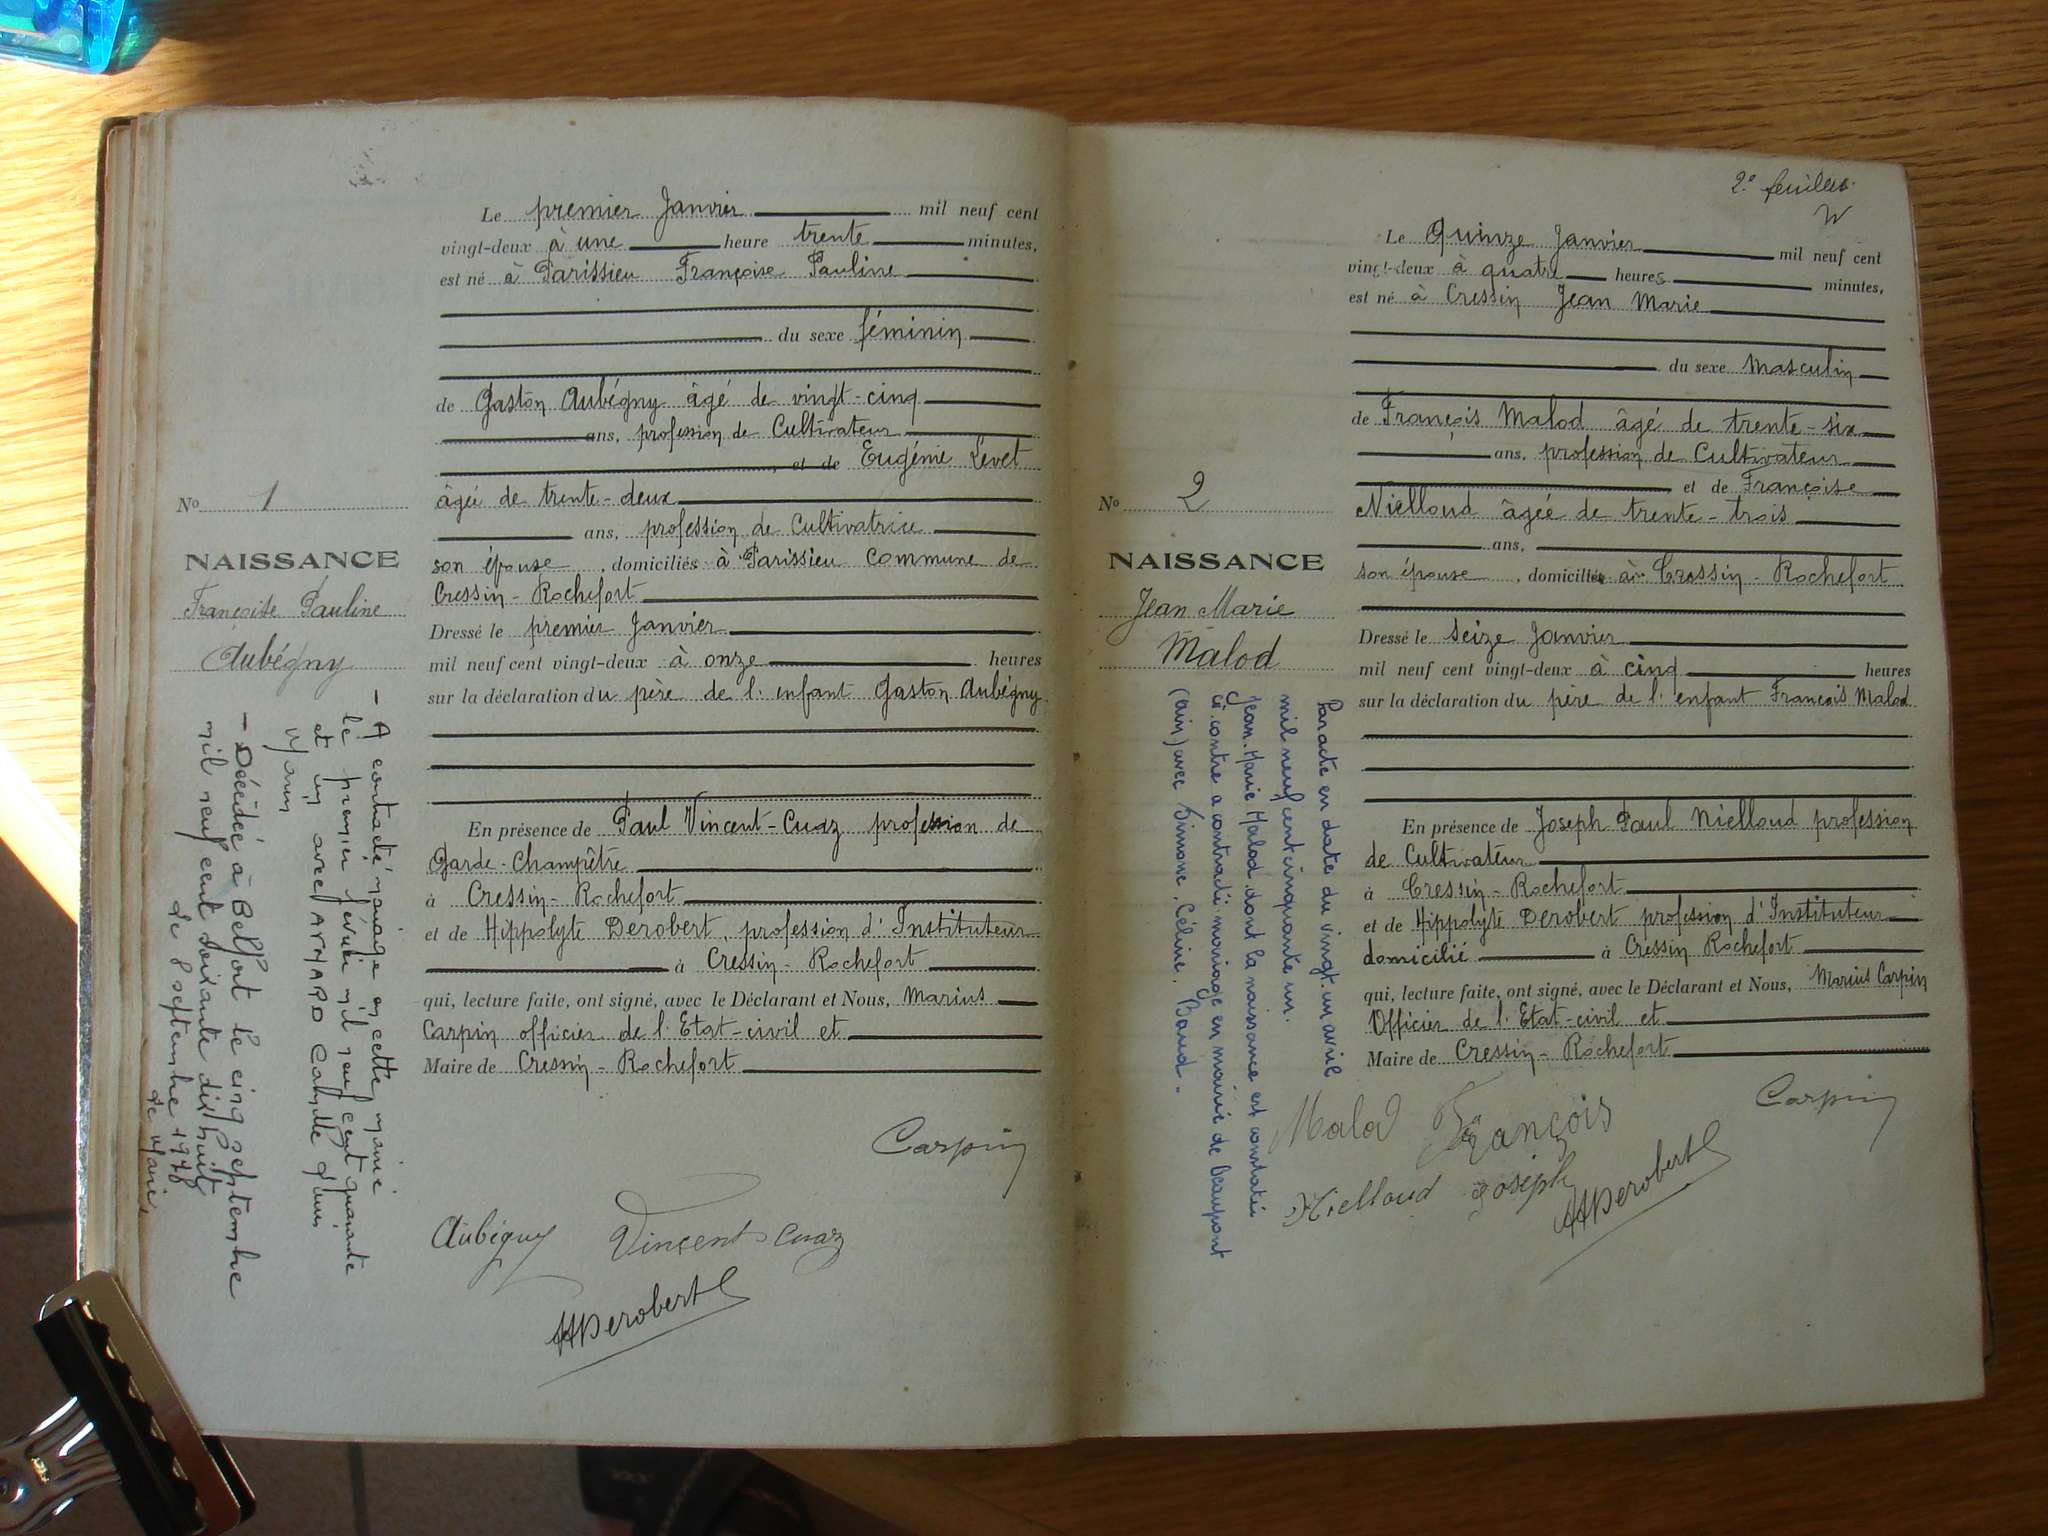 Le premier Janvier mil neuf cent
vingt-deux à une heure trente minutes,
est né à Parissieu Françoise Pauline
du sexe féminin
de Gaston Aubégny âgé de vingt-cinq
ans, profession de Cultivateur
et de Eugénie Levet
âgée de trente-deux
ans, profession de Cultivatrice
son épouse, domiciliés à Parissieu Commune de
Cressin-Rochefort
Dressé le premier Janvier
mil neuf cent vingt-deux à onze heures
sur la déclaration du père de l'enfant Gaston Aubégny
En présence de Paul Vincent-Cuaz profession de
Garde-Champêtre
à Cressin-Rochefort
et de Hippolyte Derobert, profession d'Instituteur
à Cressin-Rochefort
qui, lecture faite, ont signé, avec le Déclarant et Nous, Marius
Carpin officier de l'Etat-civil et
Maire de Cressin-Rochefort
Carpin
Aubégny Vincent Cuaz
HDerobert
No 1
NAISSANCE
Françoise Pauline
Aubégny
- A contracté mariage en cette mairie
le premier février mil neuf cent quarante
et un avec AYNARD
- Décédée à Belfort le cinq septembre
mil neuf cent soixante dix huit
Le 8 septembre 1978
Le Maire
2e feuillet
Le Quinze Janvier mil neuf cent
vingt-deux à quatre heures minutes,
est né à Cressin Jean Marie
du sexe Masculin
de François Malod âgé de trente-six
ans, profession de Cultivateur
et de Françoise
Nielloud âgée de trente-trois
ans,
son épouse, domiciliés à Cressin-Rochefort
Dressé le seize Janvier
mil neuf cent vingt-deux à cinq heures
sur la déclaration du père de l'enfant François Malod
En présence de Joseph Paul Nielloud profession
de Cultivateur
à Cressin-Rochefort
et de Hippolyte Derobert profession d'Instituteur
domicilié à Cressin Rochefort
qui, lecture faite, ont signé, avec le Déclarant et Nous, Marius Carpin
Officier de l'Etat-civil et
Maire de Cressin-Rochefort
Carpin
Malod François
Nielloud Joseph
HDerobert
No 2
NAISSANCE
Jean Marie
Malod
Par acte en date du vingt-un avril
mil neuf cent cinquante un.
Jean-Marie Malod dont la naissance est constatée
ci-contre a contracté mariage en mairie de Beaupont
(Ain) avec Simone, Céline, Baud.